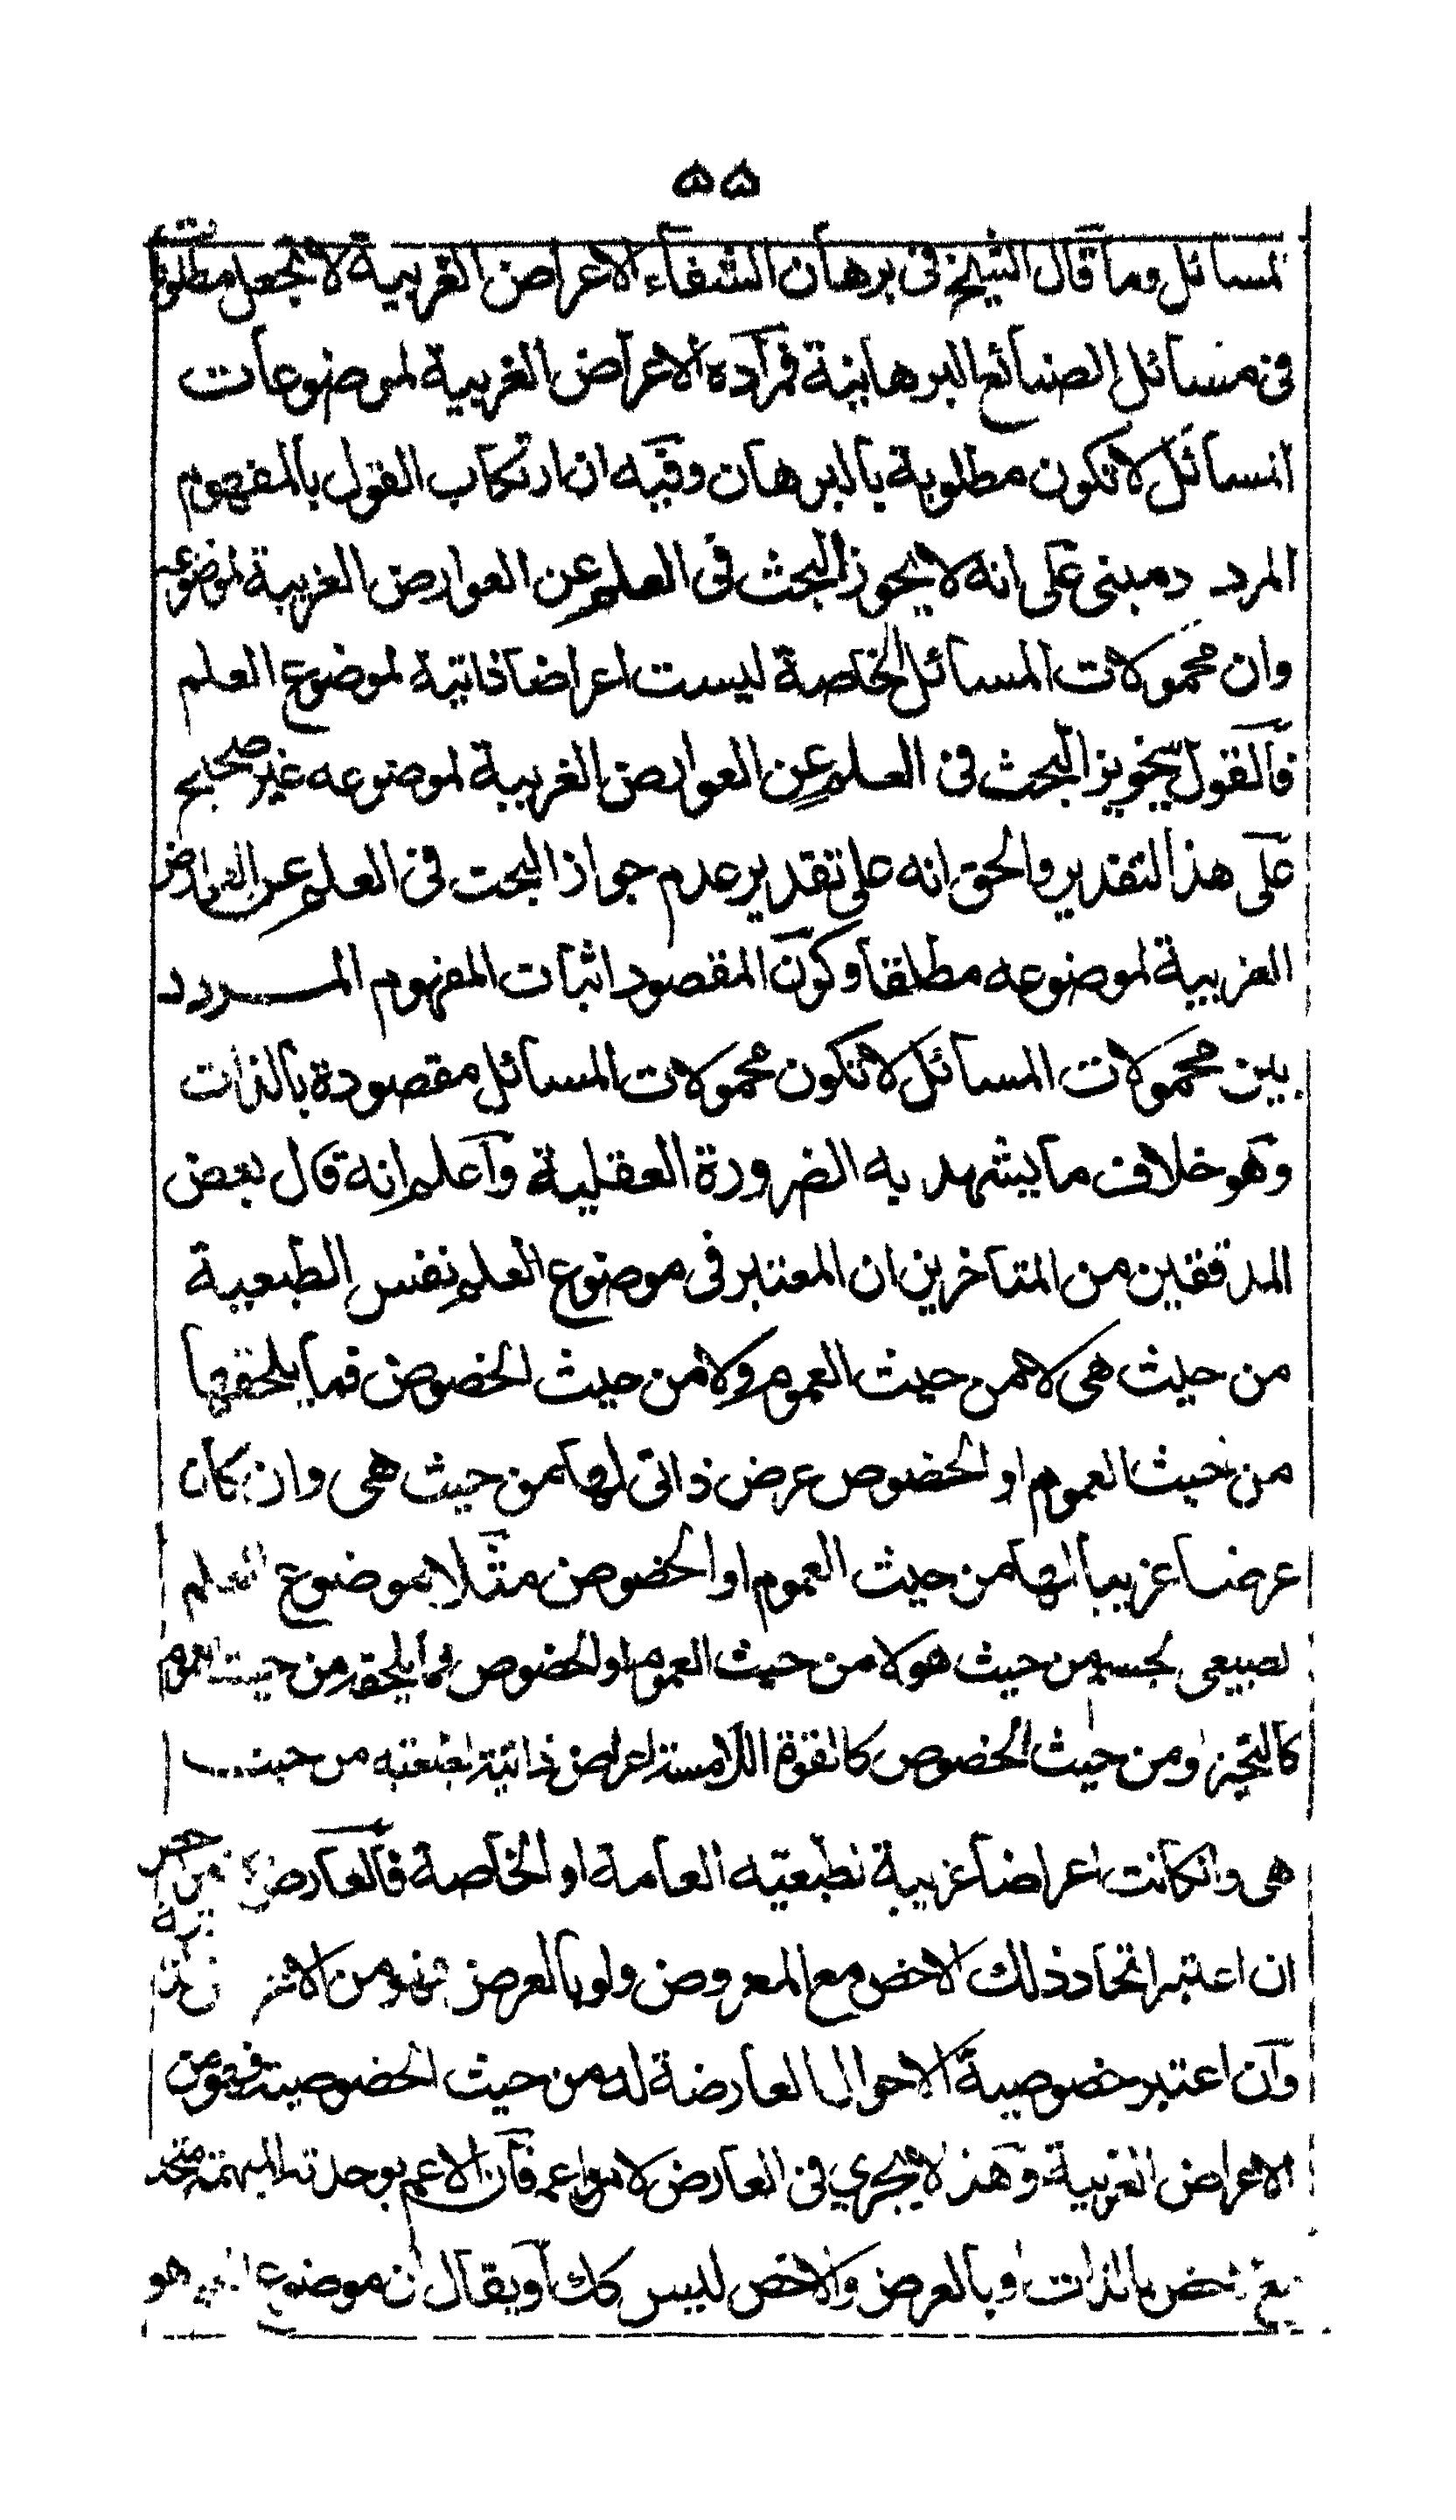 ۵۵
لمسائل وما قال الشيخ فى برهان الشفاء الاعراض الغريبة لا تجعل مطلوبة
فى مسائل الصنائع البرهانية فمراده الاعراض الغريبة لموضوعات
المسائل لا تكون مطلوبة بالبرهان وفيه ان ارتكاب القول بالمفهوم
المردد مبنى على انه لا يجوز البحث فى العلم عن العوارض الغريبة لموضوعه
وان محمولات المسائل الخاصة ليست اعراضا ذاتية لموضوع العلم
فالقول بتجويز البحث فى العلم عن العوارض الغريبة لموضوعه غير صحيح
على هذا التقدير والحق انه على تقدير عدم جواز البحث فى العلم عن العوارض
الغريبة لموضوعه مطلقا وكون المقصود اثبات المفهوم المردد
بين محمولات المسائل لا تكون محمولات المسائل مقصودة بالذات
وهو خلاف ما يشهد به الضرورة العقلية واعلم انه قال بعض
المدققين من المتاخرين ان المعتبر فى موضوع العلم نفس الطبعية
من حيث هى لا من حيث العموم ولا من حيث الخصوص فما يلحقها
من حيث العموم او الخصوص عرض ذاتى لها من حيث هى وان كان
عرضا غريبا لها من حيث العموم او الخصوص مثلا موضوع العلم
لطبيعى لجسم من حيث هو لا من حيث العموم او الخصوص فما يلحقه من حيث العموم
كالتحيز او من حيث الخصوص كالقوة اللامسة اعراض ذاتية لطبعته من حيث
هى وانكانت اعراضا غريبة لطبعته العامة او الخاصة فالعارض
ان اعتبر اتحاد ذلك الاخص مع المعروض ولو بالعرض فهو من
وان اعتبر خصوصية الاحوال العارضة له من حيث الخصوصية فهو من
الاعراض الغريبة وهذا لا يجرى فى العارض لامر اعم فان الاعم بوحدته المبهمة متحد
مع بالذات او بالعرض والاخص ليس كك او يقال ان موضوع هو